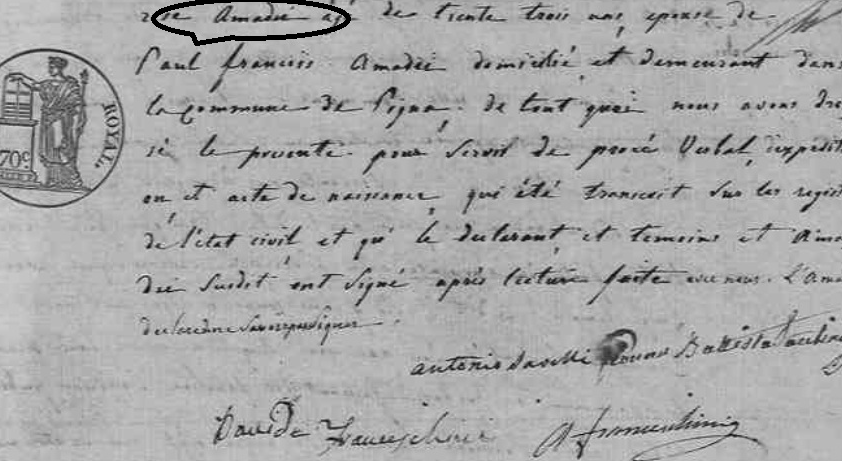 se Amadei agé de trente trois ans, epouse de
Paul francois Amadei domicilié et demeurant dans
la commune de Pigna. de tout quoi nous avons dres
sé le presente pour servir de procé Verbal, d'expediti
on et acte de naissance, qui été transcrit sur les regist
de l'état civil et qu' le declarant, et temoins et Ama
dei Susdit ont Signé après lecture faite avec nous. L'Ama
dei declare ne Savoir pas Signer.
ROYAL.
70c
antonio Savelli Battista
Davide Franceschini